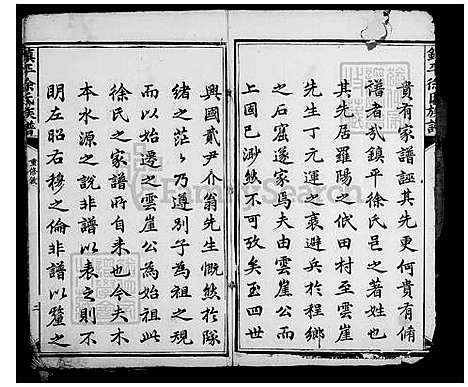 貴有家譜誣其先更何貴有脩
譜者哉鎮平徐氏邑之著姓也
其先居羅陽之伏田村至雲崖
先生丁元運之衰避兵於程鄉
之石窟遂家焉夫由雲崖公而
上固已渺然不可攷矣至四世
興國貳尹介翁先生慨然於隊
緒之茫々乃遵別子為祖之規
而以始遷之雲崖公為始祖此
徐氏之家譜所自来也今夫木
本水源之說非譜以表之則不
明左昭右穆之倫非譜以釐之
鎮平徐氏族譜
重修敘
二
鎮平徐氏族譜
FamilySearch